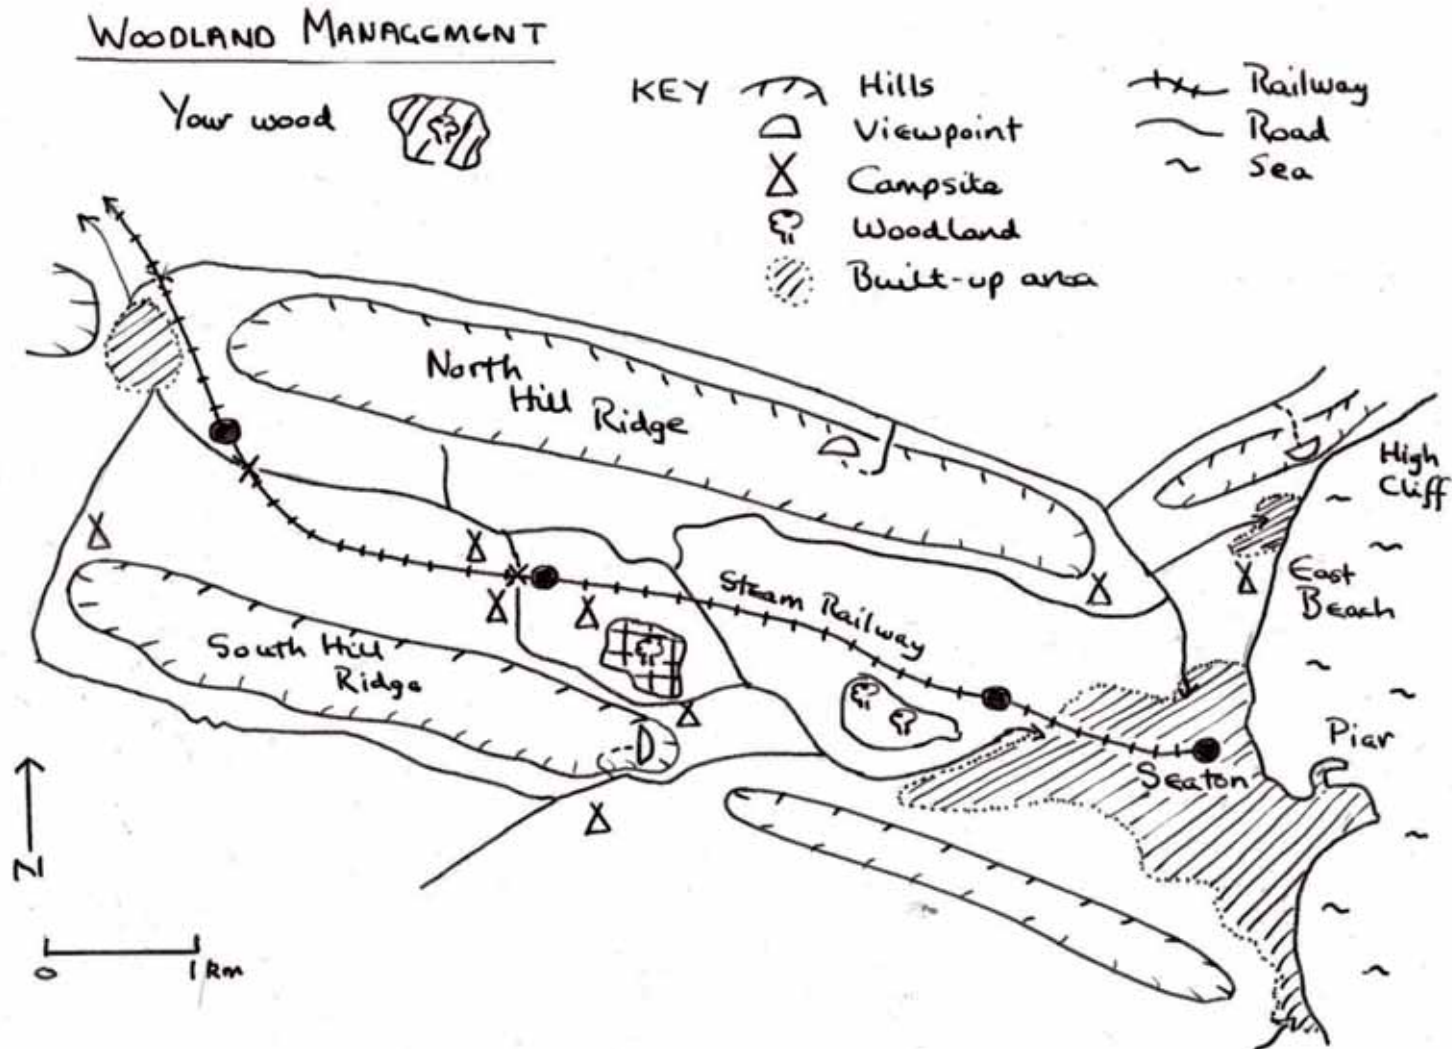 WOODLAND MANAGEMENT
Your wood
KEY
Hills
Viewpoint
Campsite
Woodland
Built-up area
Railway
Road
Sea
North
Hill Ridge
High
Cliff
East
Beach
Steam Railway
South Hill
Ridge
Pier
Seaton
N
0 1 km